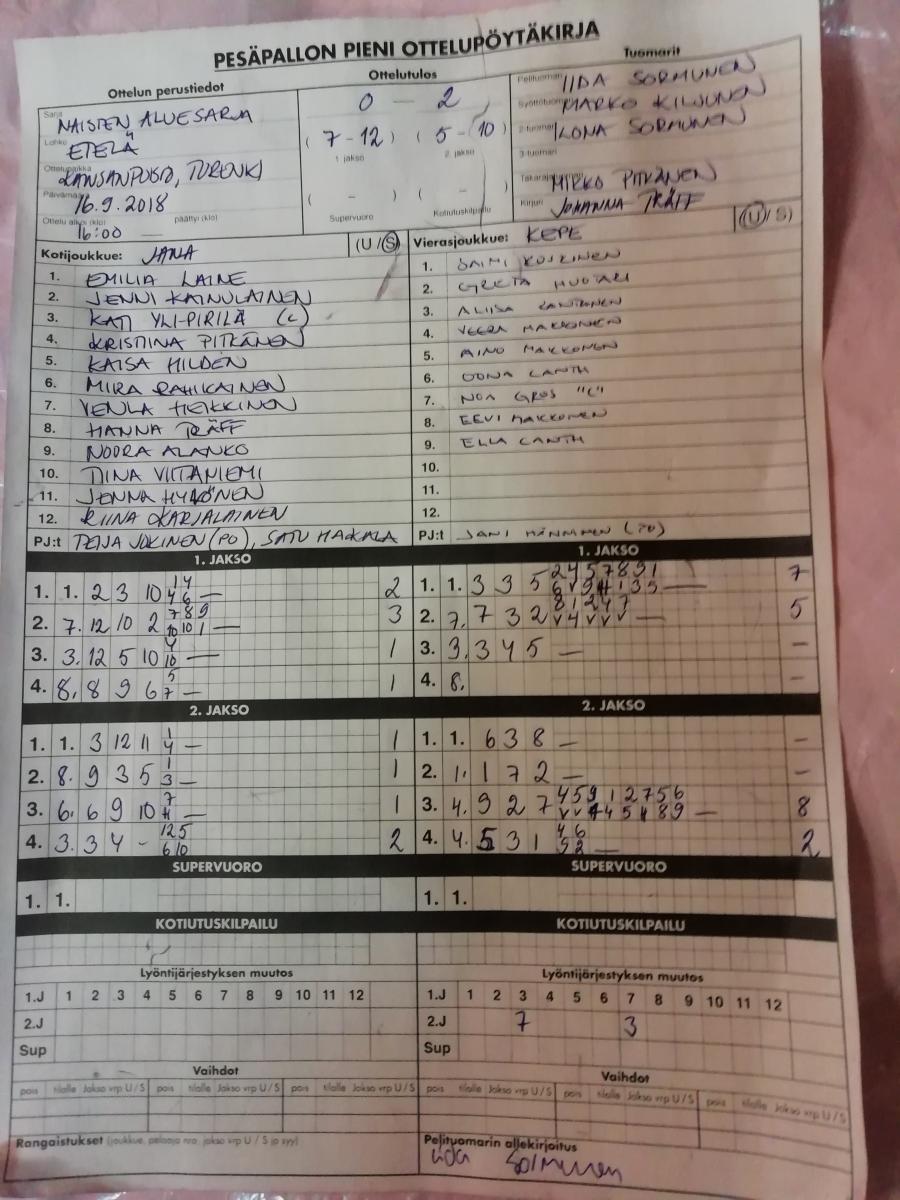 PESÄPALLON PIENI OTTELUPÖYTÄKIRJA
Ottelun perustiedot
Ottelutulos
Tuomarit
Sarja NAISTEN ALUESARJA
Lohko ETELÄ
Ottelupaikka KANSANPUISTO, TURENKI
Päivämäärä 16.9.2018
Ottelu alkoi (klo) 16:00 päättyi (klo) —
0 – 2
(7 - 12) (5 - 10)
1. jakso 2. jakso
( - ) ( - )
Supervuoro Kotiutuskilpailu
Pelituomari IIDA SORMUNEN
Syöttötuomari MARKO KILJUNEN
2-tuomari ILONA SORMUNEN
3-tuomari
Takaraja MIRKO PITKÄNEN
Kirjuri JOHANNA TRÄFF
Kotijoukkue: JANA (U / S)
1. EMILIA LAINE
2. JENNI KAINULAINEN
3. KATI YLI-PIRILÄ (C)
4. KRISTIINA PITKÄNEN
5. KAISA HILDEN
6. MIRA RAHIKAINEN
7. VENLA HEIKKINEN
8. HANNA TRÄFF
9. NOORA ALANKO
10. TIINA VIITANIEMI
11. JENNA HYVÖNEN
12. RIINA KARJALAINEN
PJ:t TEIJA JOKINEN (PO), SATU HAKALA
Vierasjoukkue: KEPE (U / S)
1. SAIMI KOSKINEN
2. GRETA HUOTARI
3. ALIISA
4. VEERA MAKKONEN
5. AINO MAKKONEN
6. OONA CANTH
7. NOA GROS "C"
8. EEVI MAKKONEN
9. ELLA CANTH
10.
11.
12.
PJ:t JANI HÄNNINEN (PO)
1. JAKSO
1. 1. 2 3 10 14 46 — 2
2. 7. 12 10 2 789 10 10 1 — 3
3. 3. 12 5 10 4 10 — 1
4. 8. 8 9 6 5 7 — 1
1. JAKSO
1. 1. 3 3 5 2457891 — 7
2. 7. 7 3 2 81247 V4VVV — 5
3. 3. 3 4 5 — –
4. 8. –
2. JAKSO
1. 1. 3 12 11 1 4 — 1
2. 8. 9 3 5 1 3 — 1
3. 6. 6 9 10 7 11 — 1
4. 3. 3 4 - 125 6 10 2
2. JAKSO
1. 1. 6 3 8 — –
2. 1. 1 7 2 — –
3. 4. 9 2 7 45912756 — 8
4. 4. 5 3 1 46 52 — 2
SUPERVUORO
1. 1.
SUPERVUORO
1. 1.
KOTIUTUSKILPAILU
KOTIUTUSKILPAILU
Lyöntijärjestyksen muutos
1.J 1 2 3 4 5 6 7 8 9 10 11 12
2.J
Sup
Lyöntijärjestyksen muutos
1.J 1 2 3 4 5 6 7 8 9 10 11 12
2.J 7 3
Sup
Vaihdot
pois tilalle Jakso vrp U / S pois tilalle Jakso vrp U / S pois tilalle Jakso vrp U / S
Vaihdot
pois tilalle Jakso vrp U / S pois tilalle Jakso vrp U / S pois tilalle Jakso vrp U / S
Rangaistukset (joukkue, pelaaja nro, jakso vrp U / S ja syy)
Pelituomarin allekirjoitus
Iida Sormunen